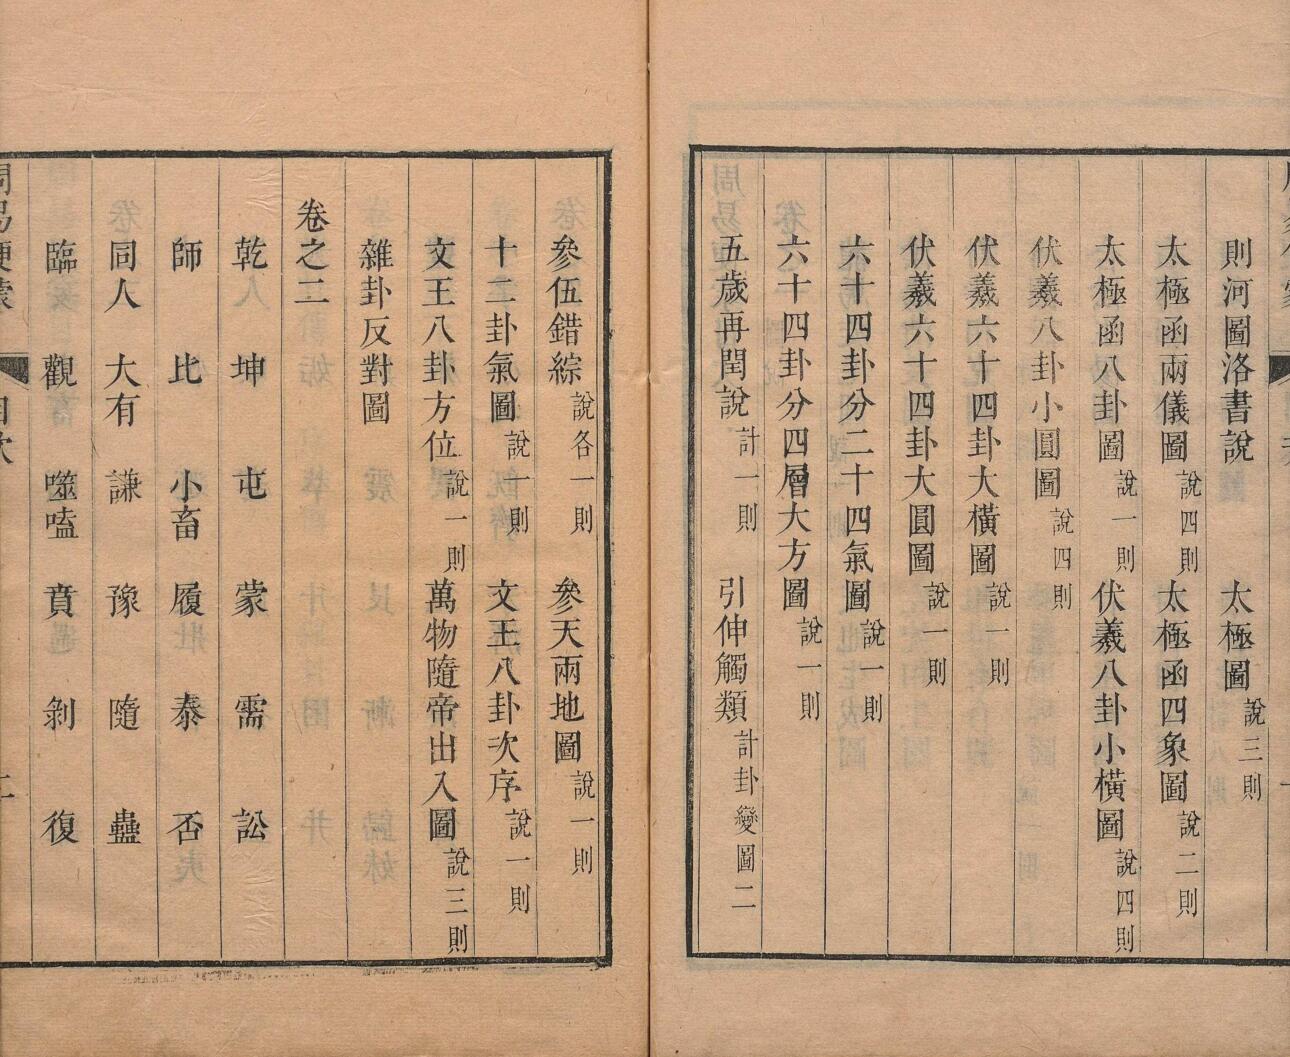 則河圖洛書說 太極圖 說三則
太極函兩儀圖 說四則 太極函四象圖 說二則
太極函八卦圖 說一則 伏羲八卦小橫圖 說四則
伏羲八卦小圓圖 說四則
伏羲六十四卦大橫圖 說一則
伏羲六十四卦大圓圖 說一則
六十四卦分二十四氣圖 說一則
六十四卦分四層大方圖 說一則
五歲再閏說 計一則 引伸觸類 計卦變圖二
參伍錯綜 說各一則 參天兩地圖 說一則
十二卦氣圖 說一則 文王八卦次序 說一則
文王八卦方位 說一則 萬物隨帝出入圖 說三則
雜卦反對圖
卷之二
乾 坤 屯 蒙 需 訟
師 比 小畜 履 泰 否
同人 大有 謙 豫 隨 蠱
臨 觀 噬嗑 賁 剝 復